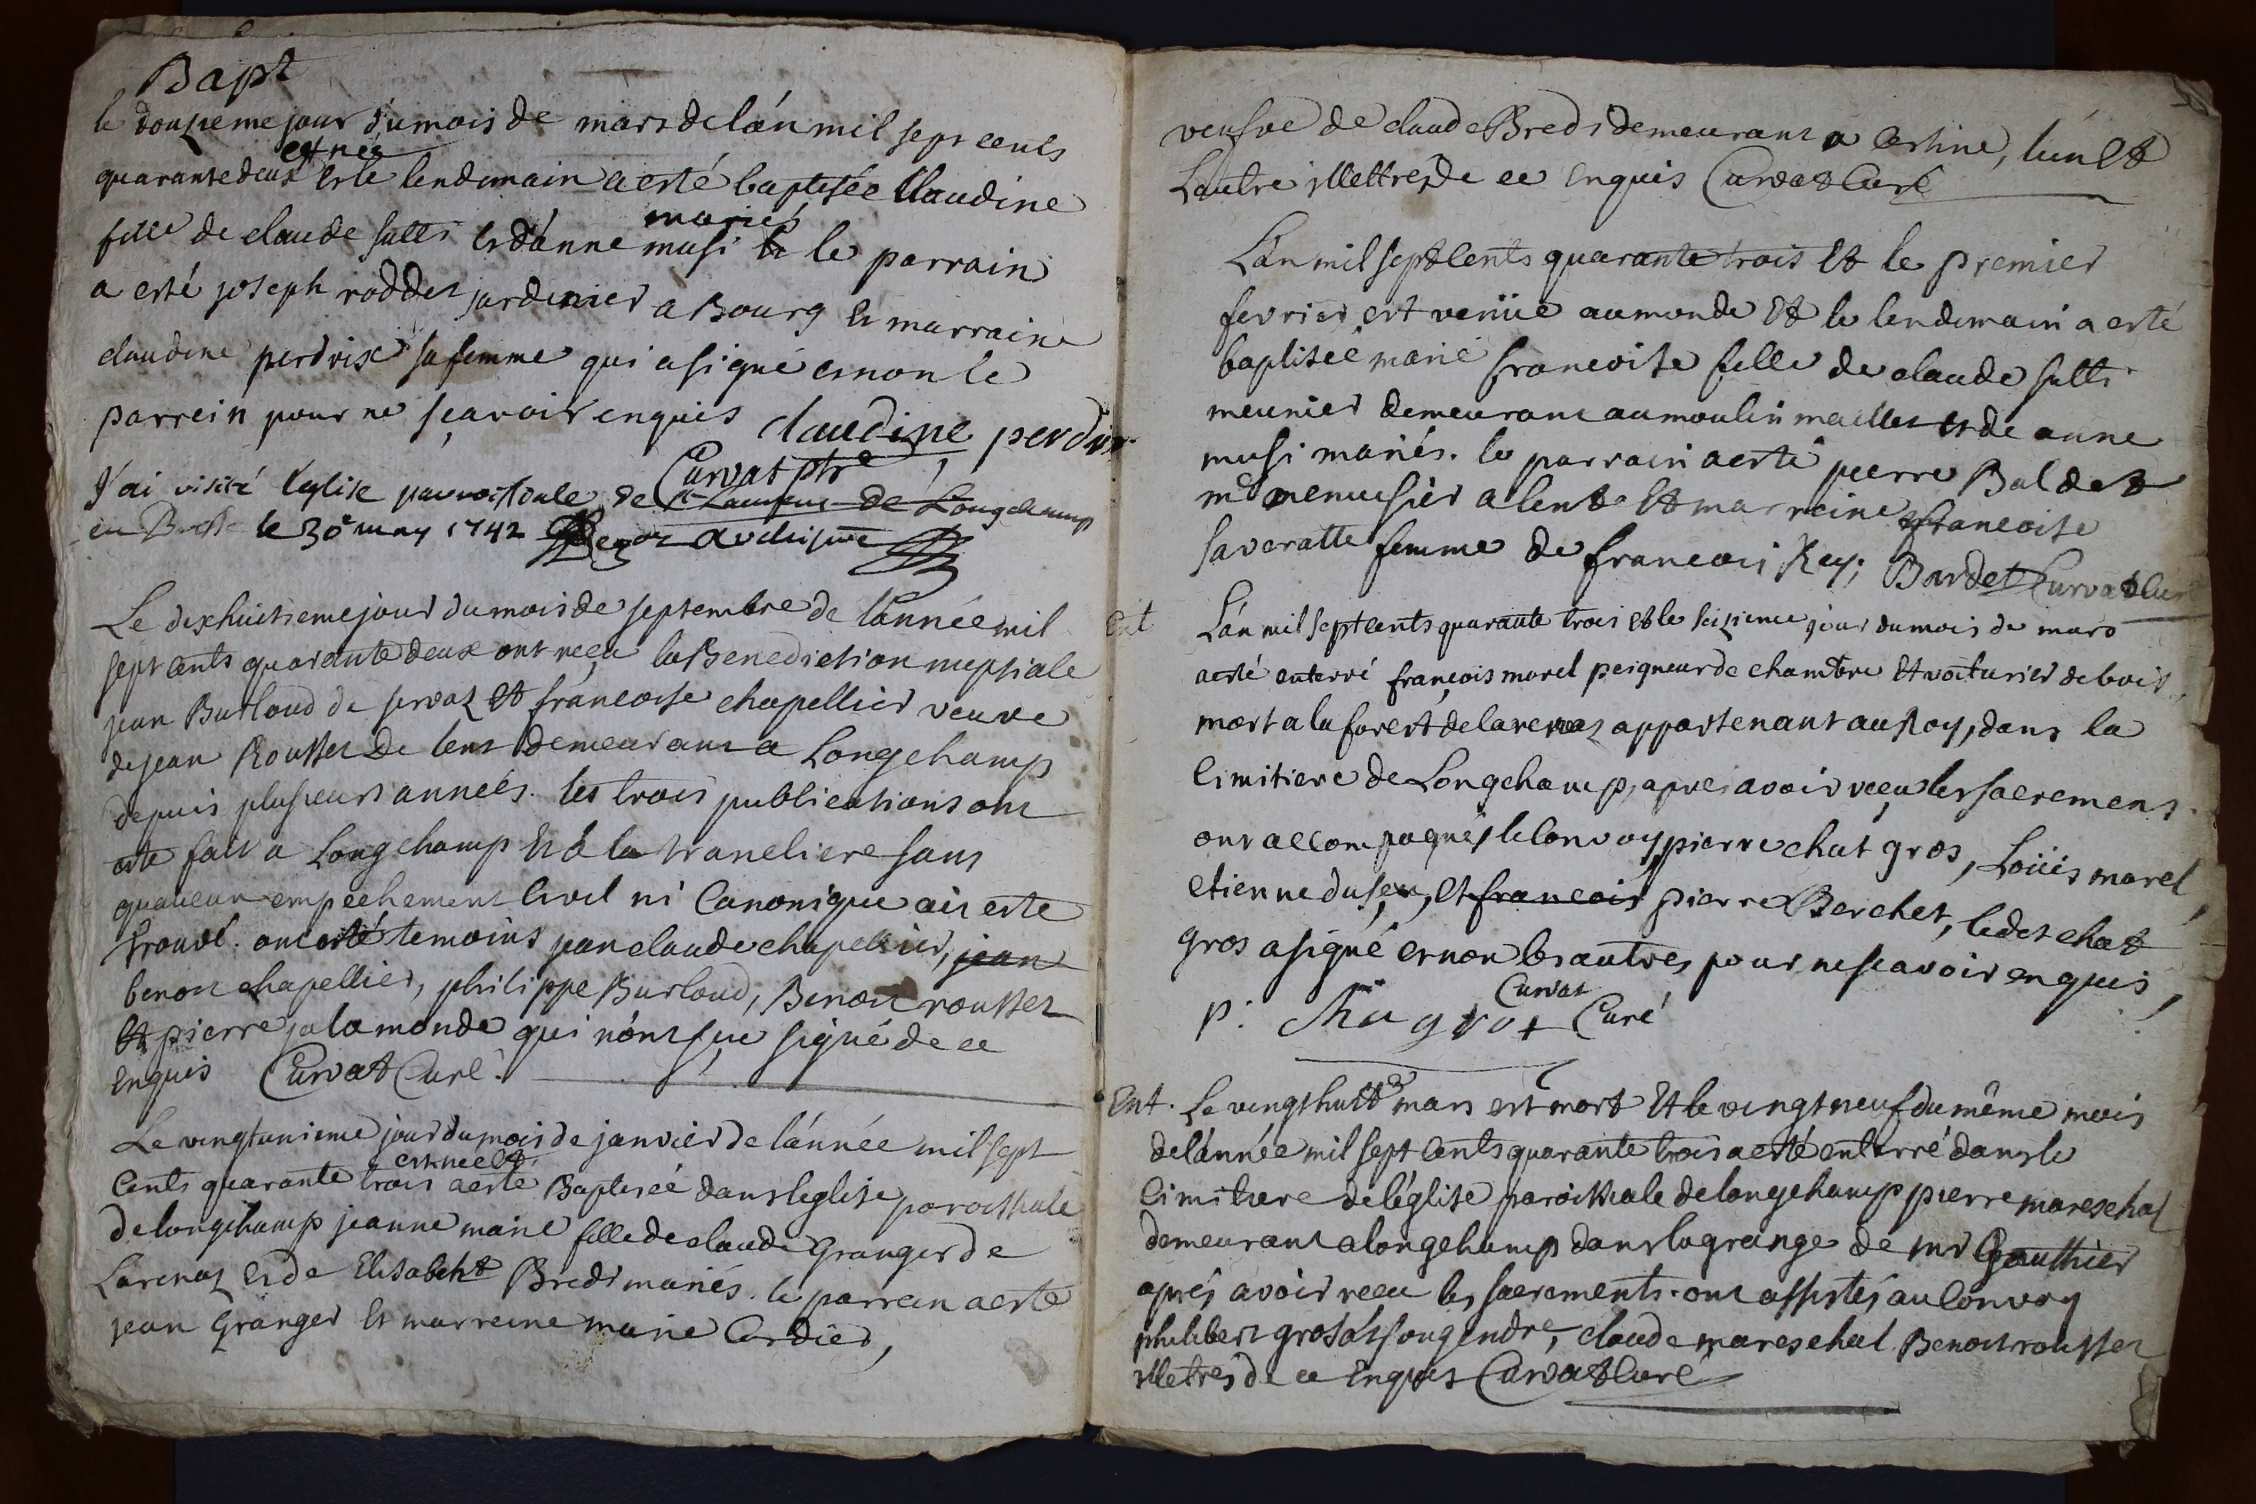 Bapt
le douzieme jour du mois de mars de lán mil sept cents
est née
quarante deux et le lendemain a esté baptisée Claudine
fille de claude sutti et dánne musi mariés le parrain
a esté joseph roddet jardinier a Bourg et marraine
claudine perdrix sa femme qui a signé et non le
parrein pour ne sçavoir enquis claudine perdrix
Curvat ptre
J'ai visité l'eglise parroissiale de St Laurent de Longchamp
en Bresse le 30e may 1742 archiprêtre
Le dix huitieme jour du mois de septembre de lánnée mil
sept cents quarante deux ont reçu la Benediction nuptiale
jean Burloud de servaz et françoise chapellier veuve
de jean Rousset de lent demeurant a Longchamp
depuis plusieurs années. les trois publications ont
esté fait a Longchamp et a la trancliere sans
quaucun empechement civil ni Canonique ait esté
trouvé. ont esté temoins jean claude chapellier, jean
benoit chapellier, philippe Burloud, Benoit rousset
et pierre jalamonde qui nónt sçu signé de ce
enquis Curvat Curé.
Le vingtunieme jour du mois de janvier de lánnée mil sept
est née et
Cents quarante trois a esté Baptisée dans leglise paroissiale
de longchamp jeanne marie fille de claude Granger de
Larenaz et de Elisabeht Bredi mariés. le parrein a esté
jean Granger et marreine marie Cordier,
veufve de claude Bredi demeurant a Certine, lún et
Lautre illettrés de ce enquis Curvat Curé
Lán mil sept Cents quarante trois et le premier
fevrier est venüe au monde et le lendemain a esté
baptisée marie francoise fille de claude sutti
meunier demeurant au moulin maillet et de anne
musi mariés. le parrain a esté pierre Baldet
me menuisier a lent et marreine francoise
saveratte femme de francois Rey; Bardet Curvat Curé
Ent Lán mil sept cents quarante trois et le seizieme jour du mois de mars
a esté enterré françois morel peigneur de chambre et voiturier de bois
mort a la forest de larenaz appartenant au Roy, dans la
Cimitiere de Longchamp, apres avoir reçu les sacremens.
ont accompagnés le Convoy pierre chat gros, Loüis morel,
etienne duseu, et francois pierre Berchet, ledit chat
gros a signé et non les autres pour ne scavoir enquis,
p. Chagrot Curvat Curé
Ent. Le vingt huit mars est mort et le vingt neuf du même mois
de lánnée mil sept Cents quarante trois a esté enterré dans le
Cimitiere de léglise paroissiale de longchamp pierre mareschal
demeurant a longchamp dans la grange de mr Gauthier
aprés avoir receu les sacrements. ont assistés au Convoy
philibert grosat son gendre, claude mareschal Benoit rousset
illetres de ce enquis Curvat Curé